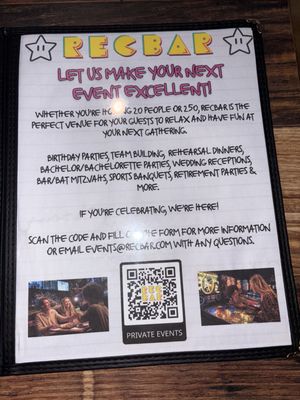 RECBAR
LET US MAKE YOUR NEXT
EVENT EXCELLENT!
WHETHER YOU'RE HOSTING 20 PEOPLE OR 250, RECBAR IS THE
PERFECT VENUE FOR YOUR GUESTS TO RELAX AND HAVE FUN AT
YOUR NEXT GATHERING.
BIRTHDAY PARTIES, TEAM BUILDING, REHEARSAL DINNERS,
BACHELOR/BACHELORETTE PARTIES, WEDDING RECEPTIONS,
BAR/BAT MITZVAHS, SPORTS BANQUETS, RETIREMENT PARTIES &
MORE.
IF YOU'RE CELEBRATING, WE'RE HERE!
SCAN THE CODE AND FILL OUT THE FORM FOR MORE INFORMATION
OR EMAIL EVENTS@RECBAR.COM WITH ANY QUESTIONS.
REC
BAR
PRIVATE EVENTS